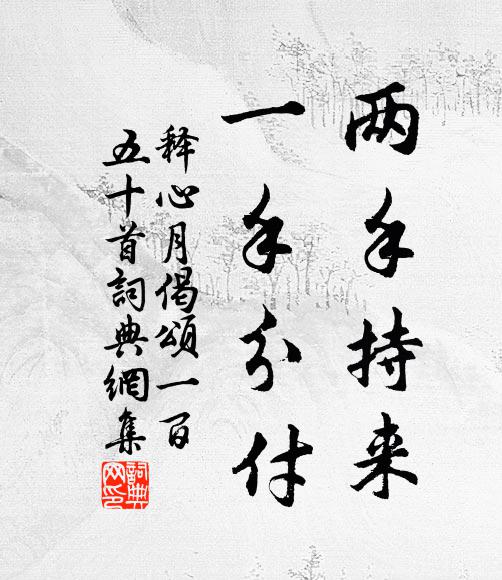 两手持来
一手分付
释心月偈颂一百
五十首詞典網集
詞典
网印